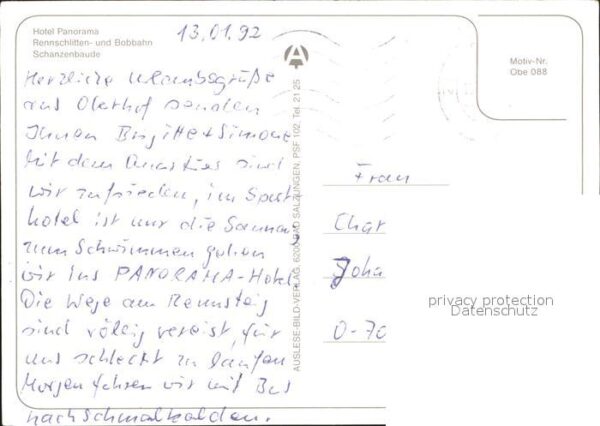 Hotel Panorama
Rennschlitten- und Bobbahn
Schanzenbaude
13.01.92
Motiv-Nr.
Obe 088
Herzliche Urlaubsgrüße
aus Oberhof senden
Ihnen Brigitte + Simone
Mit dem Quartier sind
wir zufrieden, im Sport
hotel ist nur die Sauna,
zum Schwimmen gehen
wir ins PANORAMA-Hotel
Die Wege am Rennsteig
sind völlig vereist, für
uns schlecht zu laufen
Morgen fahren wir mit Bus
nach Schmalkalden.
AUSLESE-BILD-VERLAG, 6200 BAD SALZUNGEN, PSF 102, Tel. 21 25
Frau
Char
Joha
O-70
privacy protection
Datenschutz